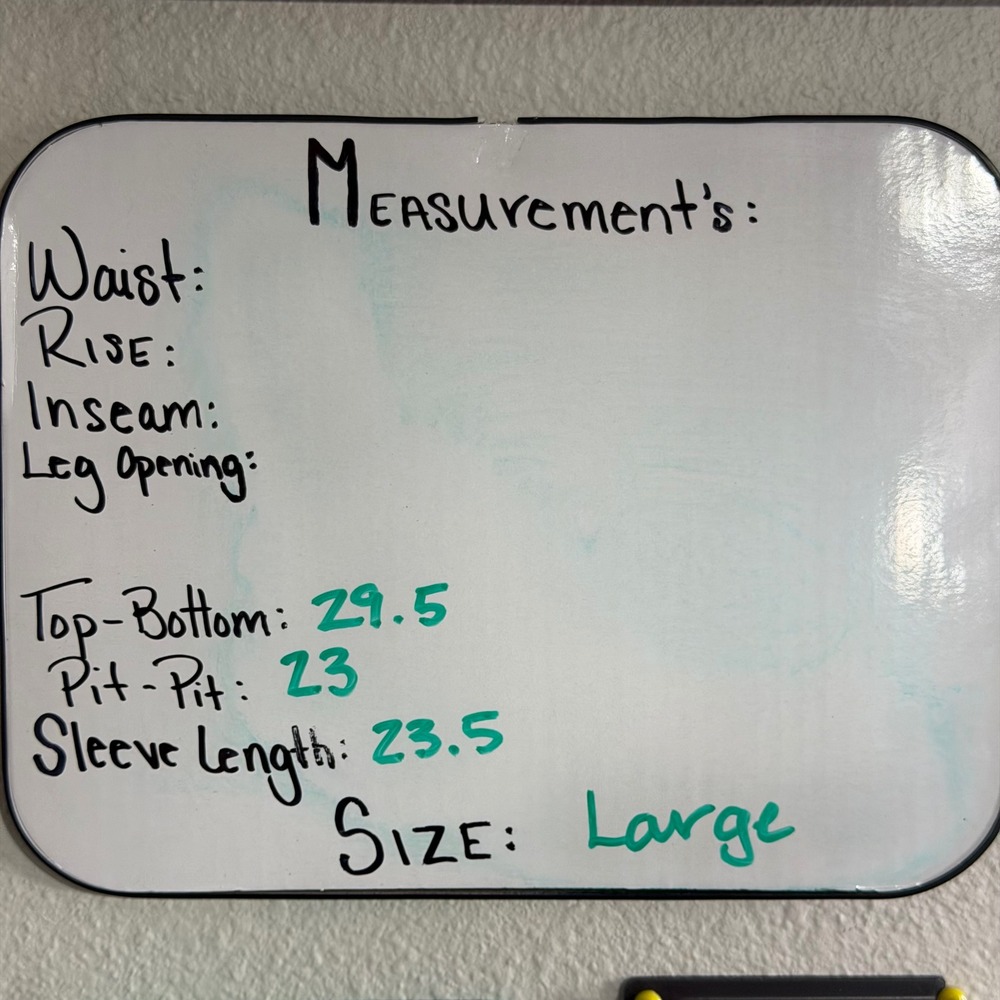 MEASurement's:
Waist:
RISE:
Inseam:
Leg Opening:
Top-Bottom: 29.5
Pit-Pit: 23
Sleeve Length: 23.5
SIZE: Large